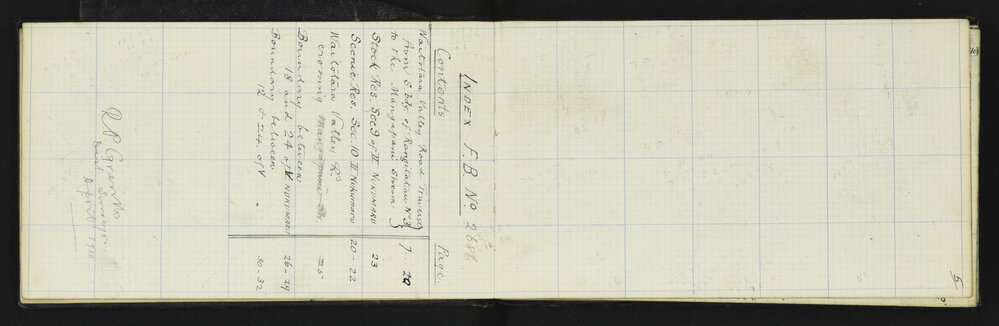 INDEX F. B. No 2686.
Contents Page.
Waitotara Valley Road Traverse
from S. bdy of Rangitatau No 3
to the Mangapani Stream 7 - 20
Stock Res. Sec 9 of II NUKUMARU 23
Scenic Res. Sec. 10 II NUKUMARU 20 - 22
Waitotara Valley Rd
crossing 25
Boundary between
18 and 24 of V NUKUMARU 26 - 29
Boundary between
12 & 24. of V 30 - 32
Dist Surveyor
April
5